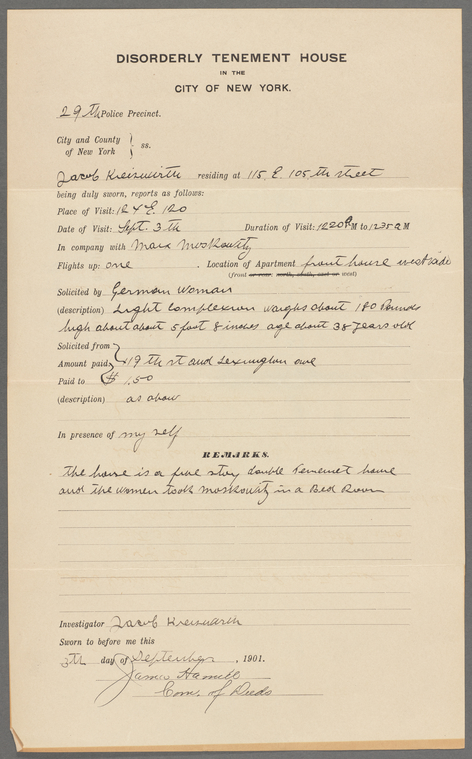 DISORDERLY TENEMENT HOUSE
IN THE
CITY OF NEW YORK.
29th Police Precinct.
City and County
of New York } ss.
Jacob Kreiswirth residing at 115 E. 105th street
being duly sworn, reports as follows:
Place of Visit: 124 E. 120
Date of Visit: Sept. 3th Duration of Visit: 1220 A M to 1235 A M
In company with Max Moskowitz
Flights up: one . Location of Apartment front house west side
(front or rear, north, south, east or west)
Solicited by German Woman
(description) Light complexion waighs about 180 Pounds
high about about 5 foot 8 inches age about 38 years old
Solicited from
Amount paid } 119th st and Lexington ave
Paid to $ 1.50
(description) as abow
In presence of my self
REMARKS.
the house is a five story double tenemet house
and the women took Moskowitz in a Bed Room
Investigator Jacob Kreiswirth
Sworn to before me this
5th day of September , 1901.
James Hamill
Com. of Deeds